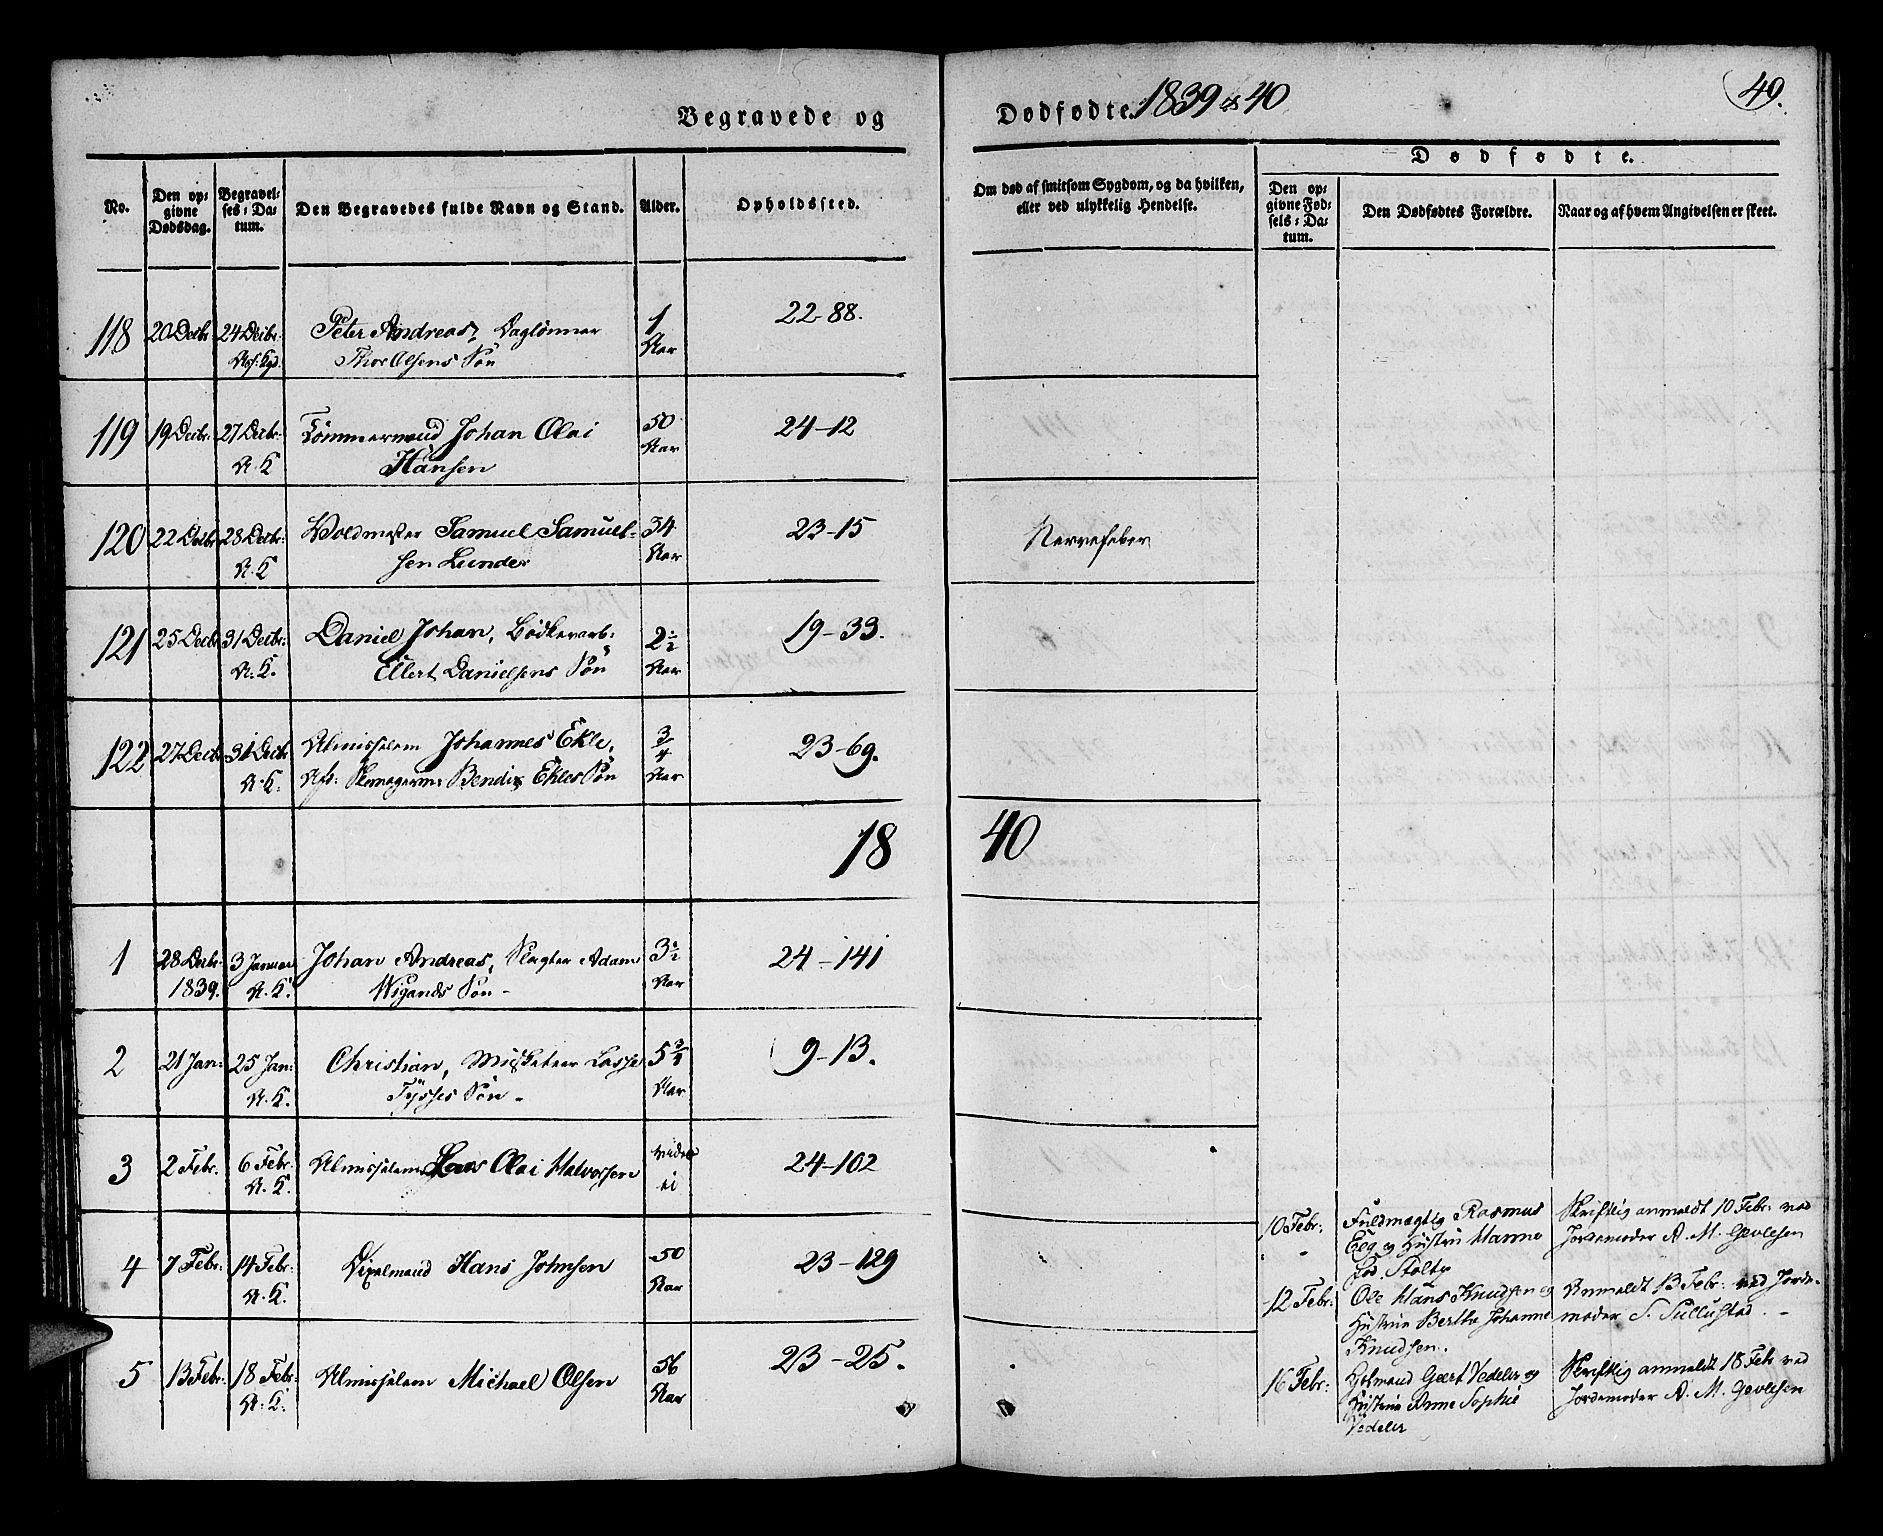 Begravede og
Dødfødte. 1839 & 40
49.
No.
Den opgivne Dødsdag.
Begravelses-Datum.
Den Begravedes fulde Navn og Stand.
Alder.
Opholdssted.
Om død af smitsom Sygdom, og da hvilken,
eller ved ulykkelig Hendelse.
Dødfødte.
Den opgivne Fødsels-Datum.
Den Dødfødtes Forældre.
Naar og af hvem Angivelsen er skeet.
118 20 Decbr 24 Decbr. Peter Andreas, Daglønner 1 22-88.
Thor Olsens Søn Aar
119 19 Decbr. 27 Decbr. Tømmermand Johan Olai 50 24-12
A. K Hansen Aar
120 22 Decbr 28 Decbr: Voldmester Samuel Samuel- 34 23-15 Nervefeber
A. K sen Lunder Aar
121 25 Decbr 31 Decbr: Daniel Johan, Bødkerarb: 2 1/2 19-33.
A. K. Ellert Danielsens Søn Aar
122 27 Decbr 31 Decbr Almisselem Johannes Ekle, 3/4 23-69.
A. K. Afs: Bendix Ekles Søn Aar
18 40
1 28 Decbr. 3 Januar Johan Andreas, Slagter Adam 3 1/2 24-141
1839. A. K. Wigands Søn - Aar
2 21 Jan: 25 Jan: Christian, Musketeer Lasse 5 3/4 9-13.
A. K. Tysses Søn - Aar
3 2 Febr. 6 Febr. Almisselem Lars Olai Halvorsen 24-102
A. K.
4 7 Febr: 14 Febr: Hans Johnsen 50 23-129
A. K. Aar
5 13 Febr: 18 Febr: Almisselem Michael Olsen 56 23-25.
A. K. Aar
10 Febr: Fuldmægtig Rasmus Skriftlig anmeldt 10 Febr: ved
Eeg og Hustru Hanne Jordemoder A. M. Gevlesen
fød. Stolty
12 Febr: Ole Hans Knudsen og Anmeldt 13 Febr: ved Jorde-
Hustrue Berthe Johanne moder S. Sullustad. -
Knudsen.
16 Febr: Geert Vedeler og Skriftlig anmeldt 18 Febr ved
Hustrue Anne Sophie Jordemoder A. M. Gevlesen
Vedeler